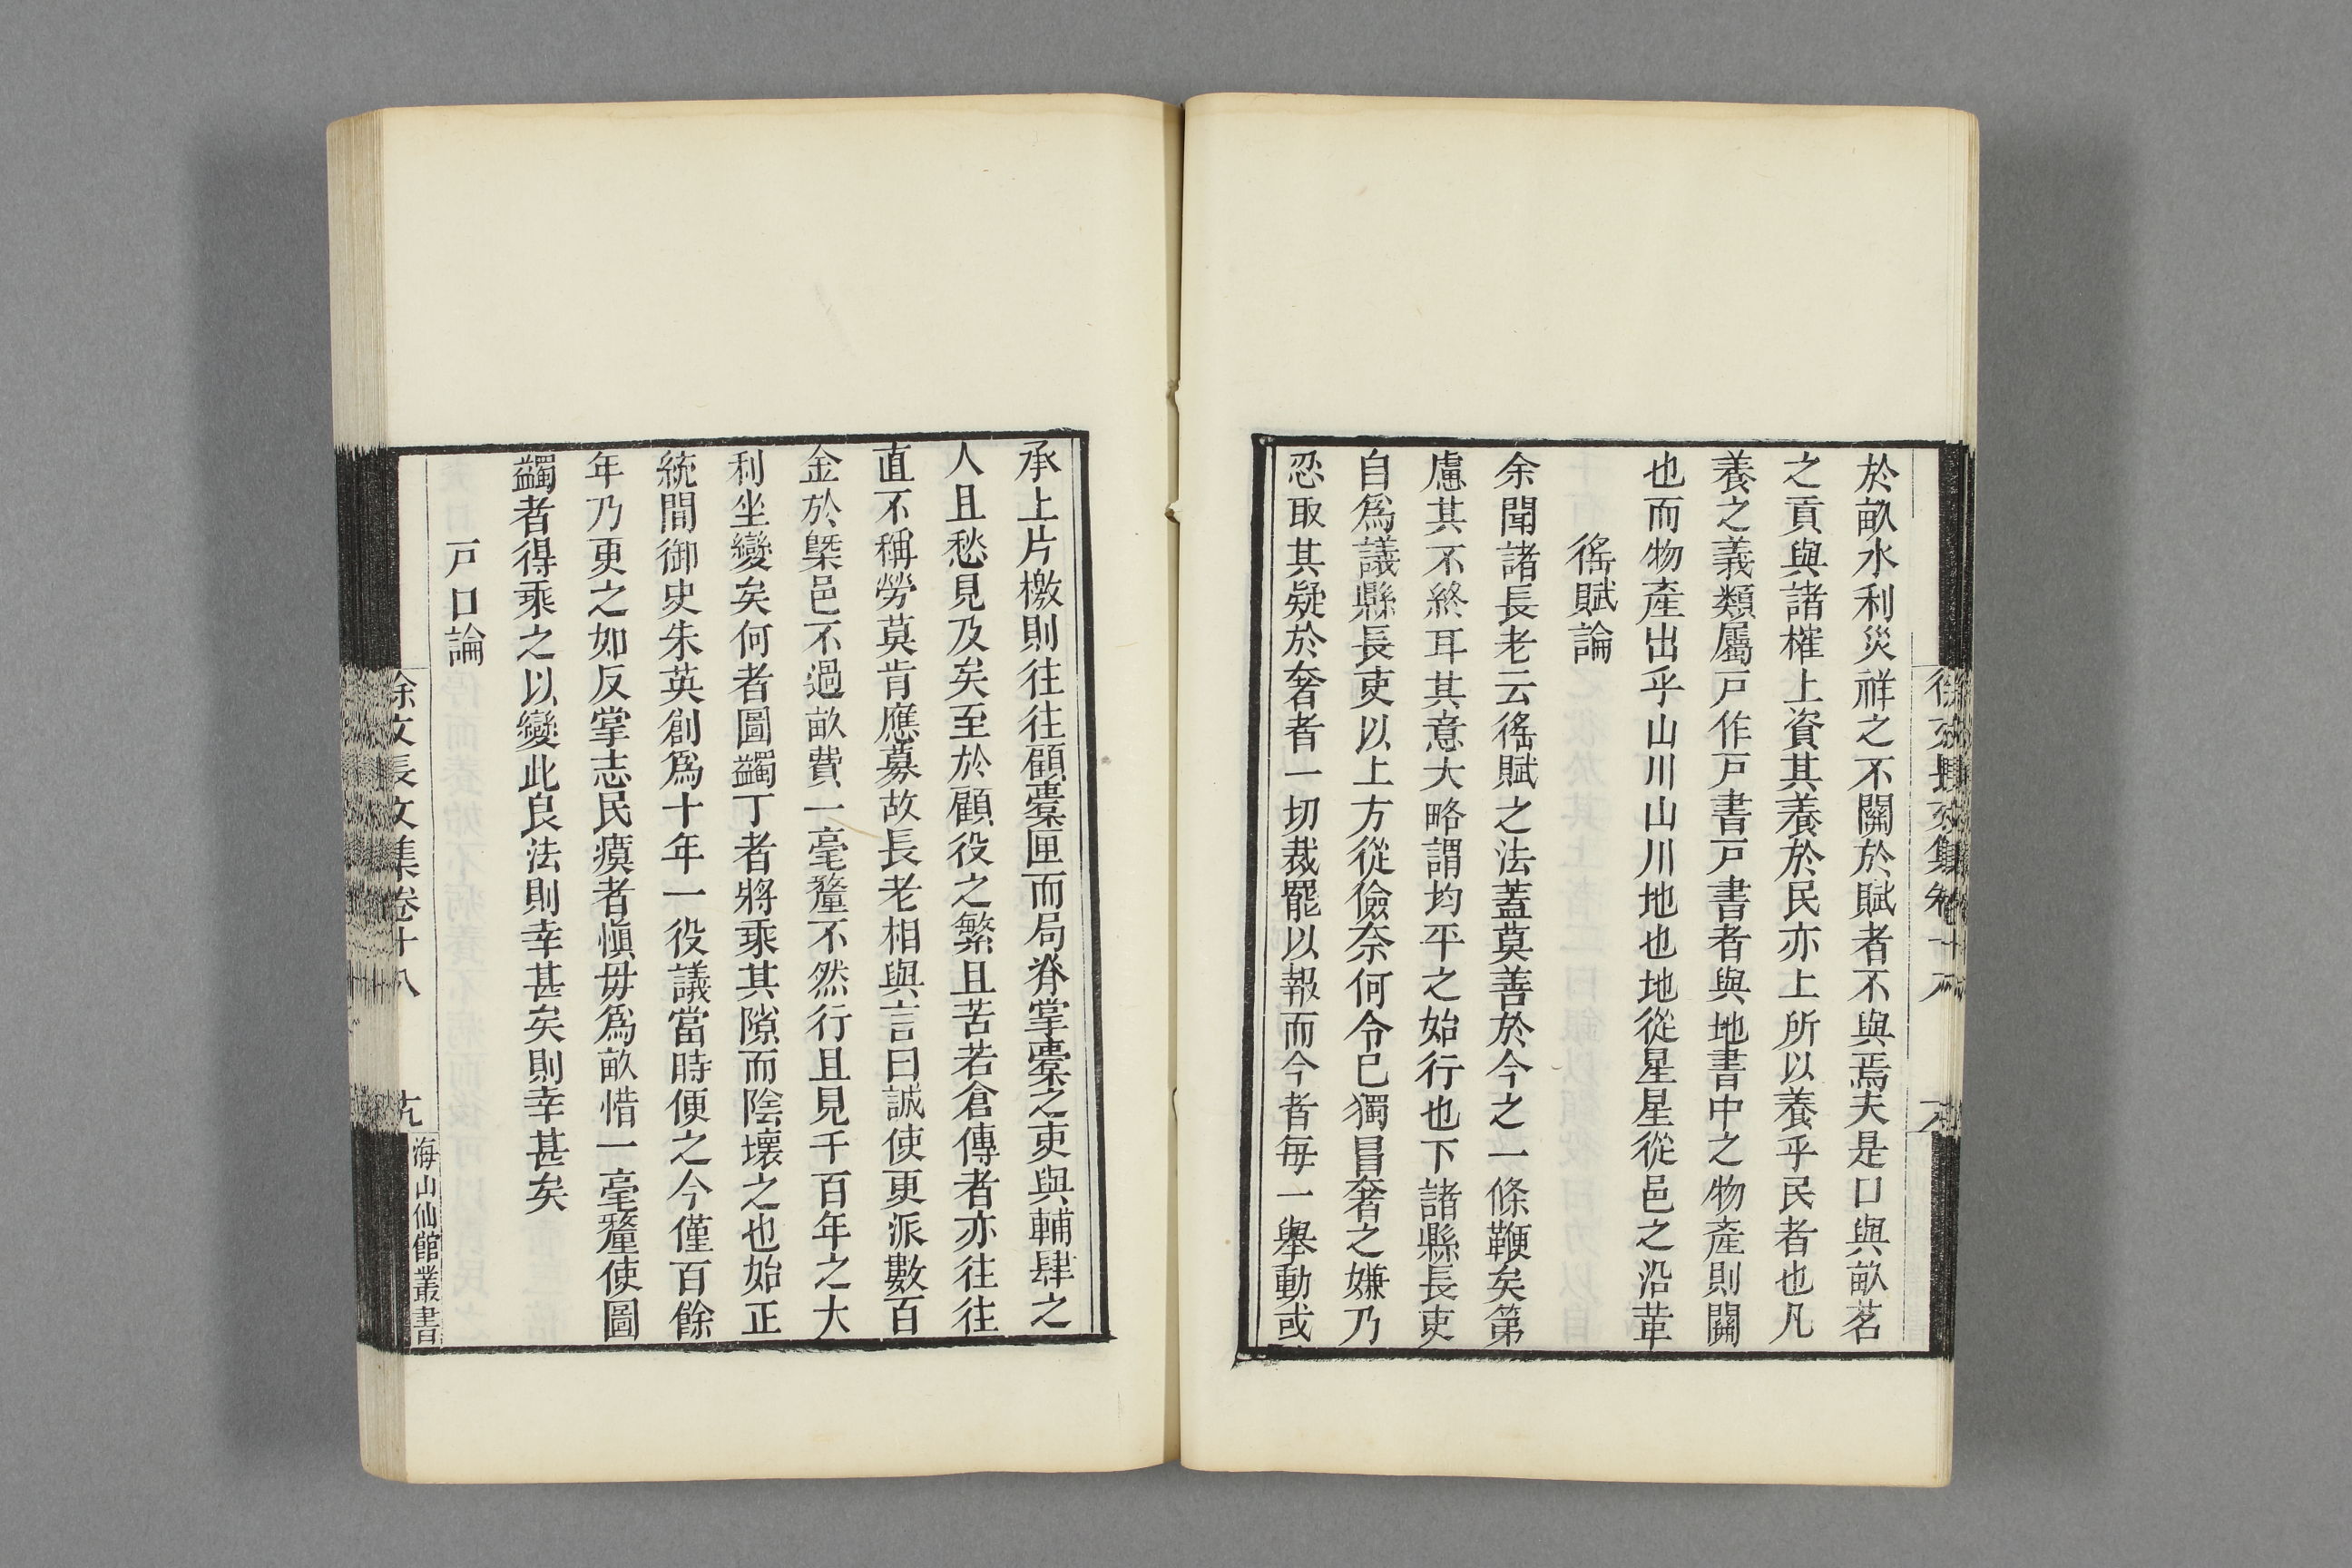 於畝水利災祥之不關於賦者不與焉夫是口與畝茗
之貢與諸榷上資其養於民亦上所以養乎民者也凡
養之義類屬戸作戸書戸書者與地書中之物產則關
也而物產出乎山川山川地也地從星星從邑之沿革
徭賦論
余聞諸長老云徭賦之法蓋莫善於今之一條鞭矣第
慮其不終耳其意大略謂均平之始行也下諸縣長吏
自爲議縣長吏以上方從儉奈何令已獨冒奢之嫌乃
忍取其疑於奢者一切裁罷以報而今者每一舉動或
承上片檄則往往顧橐匣而局脊掌橐之吏與輔肆之
人且愁見及矣至於顧役之繁且苦若倉傳者亦往往
直不稱勞莫肯應募故長老相與言曰誠使更派數百
金於槩邑不過畝費一毫釐不然行且見千百年之大
利坐變矣何者圖蠲丁者將乘其隙而陰壞之也始正
統間御史朱英創爲十年一役議當時便之今僅百餘
年乃更之如反掌志民瘼者愼毋爲畝惜一毫釐使圖
蠲者得乘之以變此良法則幸甚矣則幸甚矣
戸口論
徐文長文集卷十八
海山仙館叢書